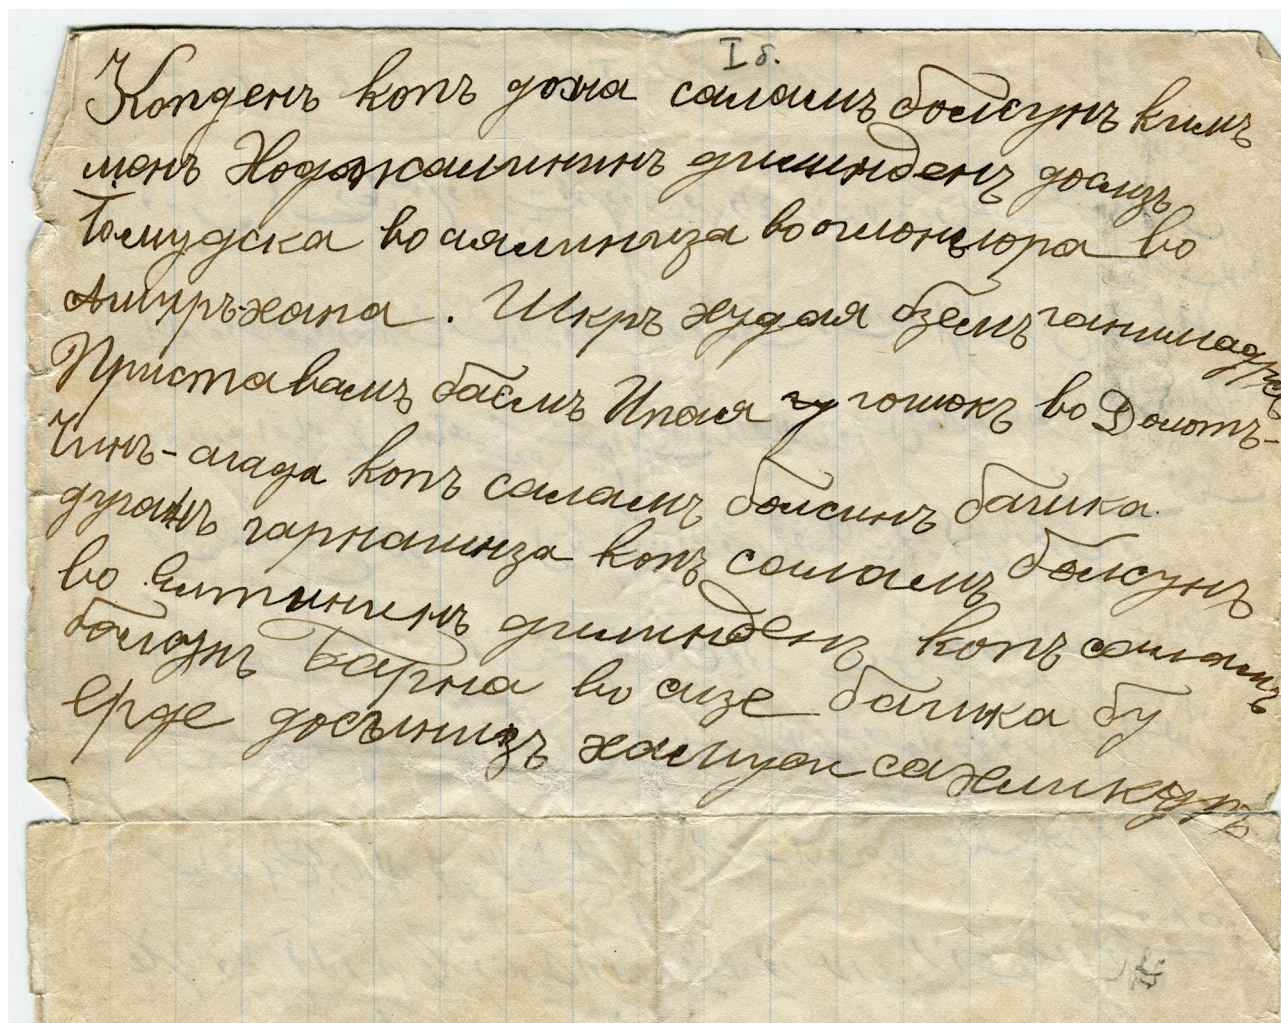 I б.
Копденъ копъ дога саламъ болсунъ кимъ
менъ Ходжалининъ дилинденъ досмзъ
Томудска во аялиныза во оглонлора во
Ашуръ-хана. Шкръ худая бземъ ганимадржъ
Приставамъ баемъ Ипая гошокъ во Долотъ-
Чинъ-агада копъ саламъ болсинъ башка
дуганъ гарнашнза копъ саламъ болсунъ
во Ялтининъ дилинденъ копъ саламъ
болсунъ Барна во сизе башка бу
ерде досъынизъ хамуси сахликдръ